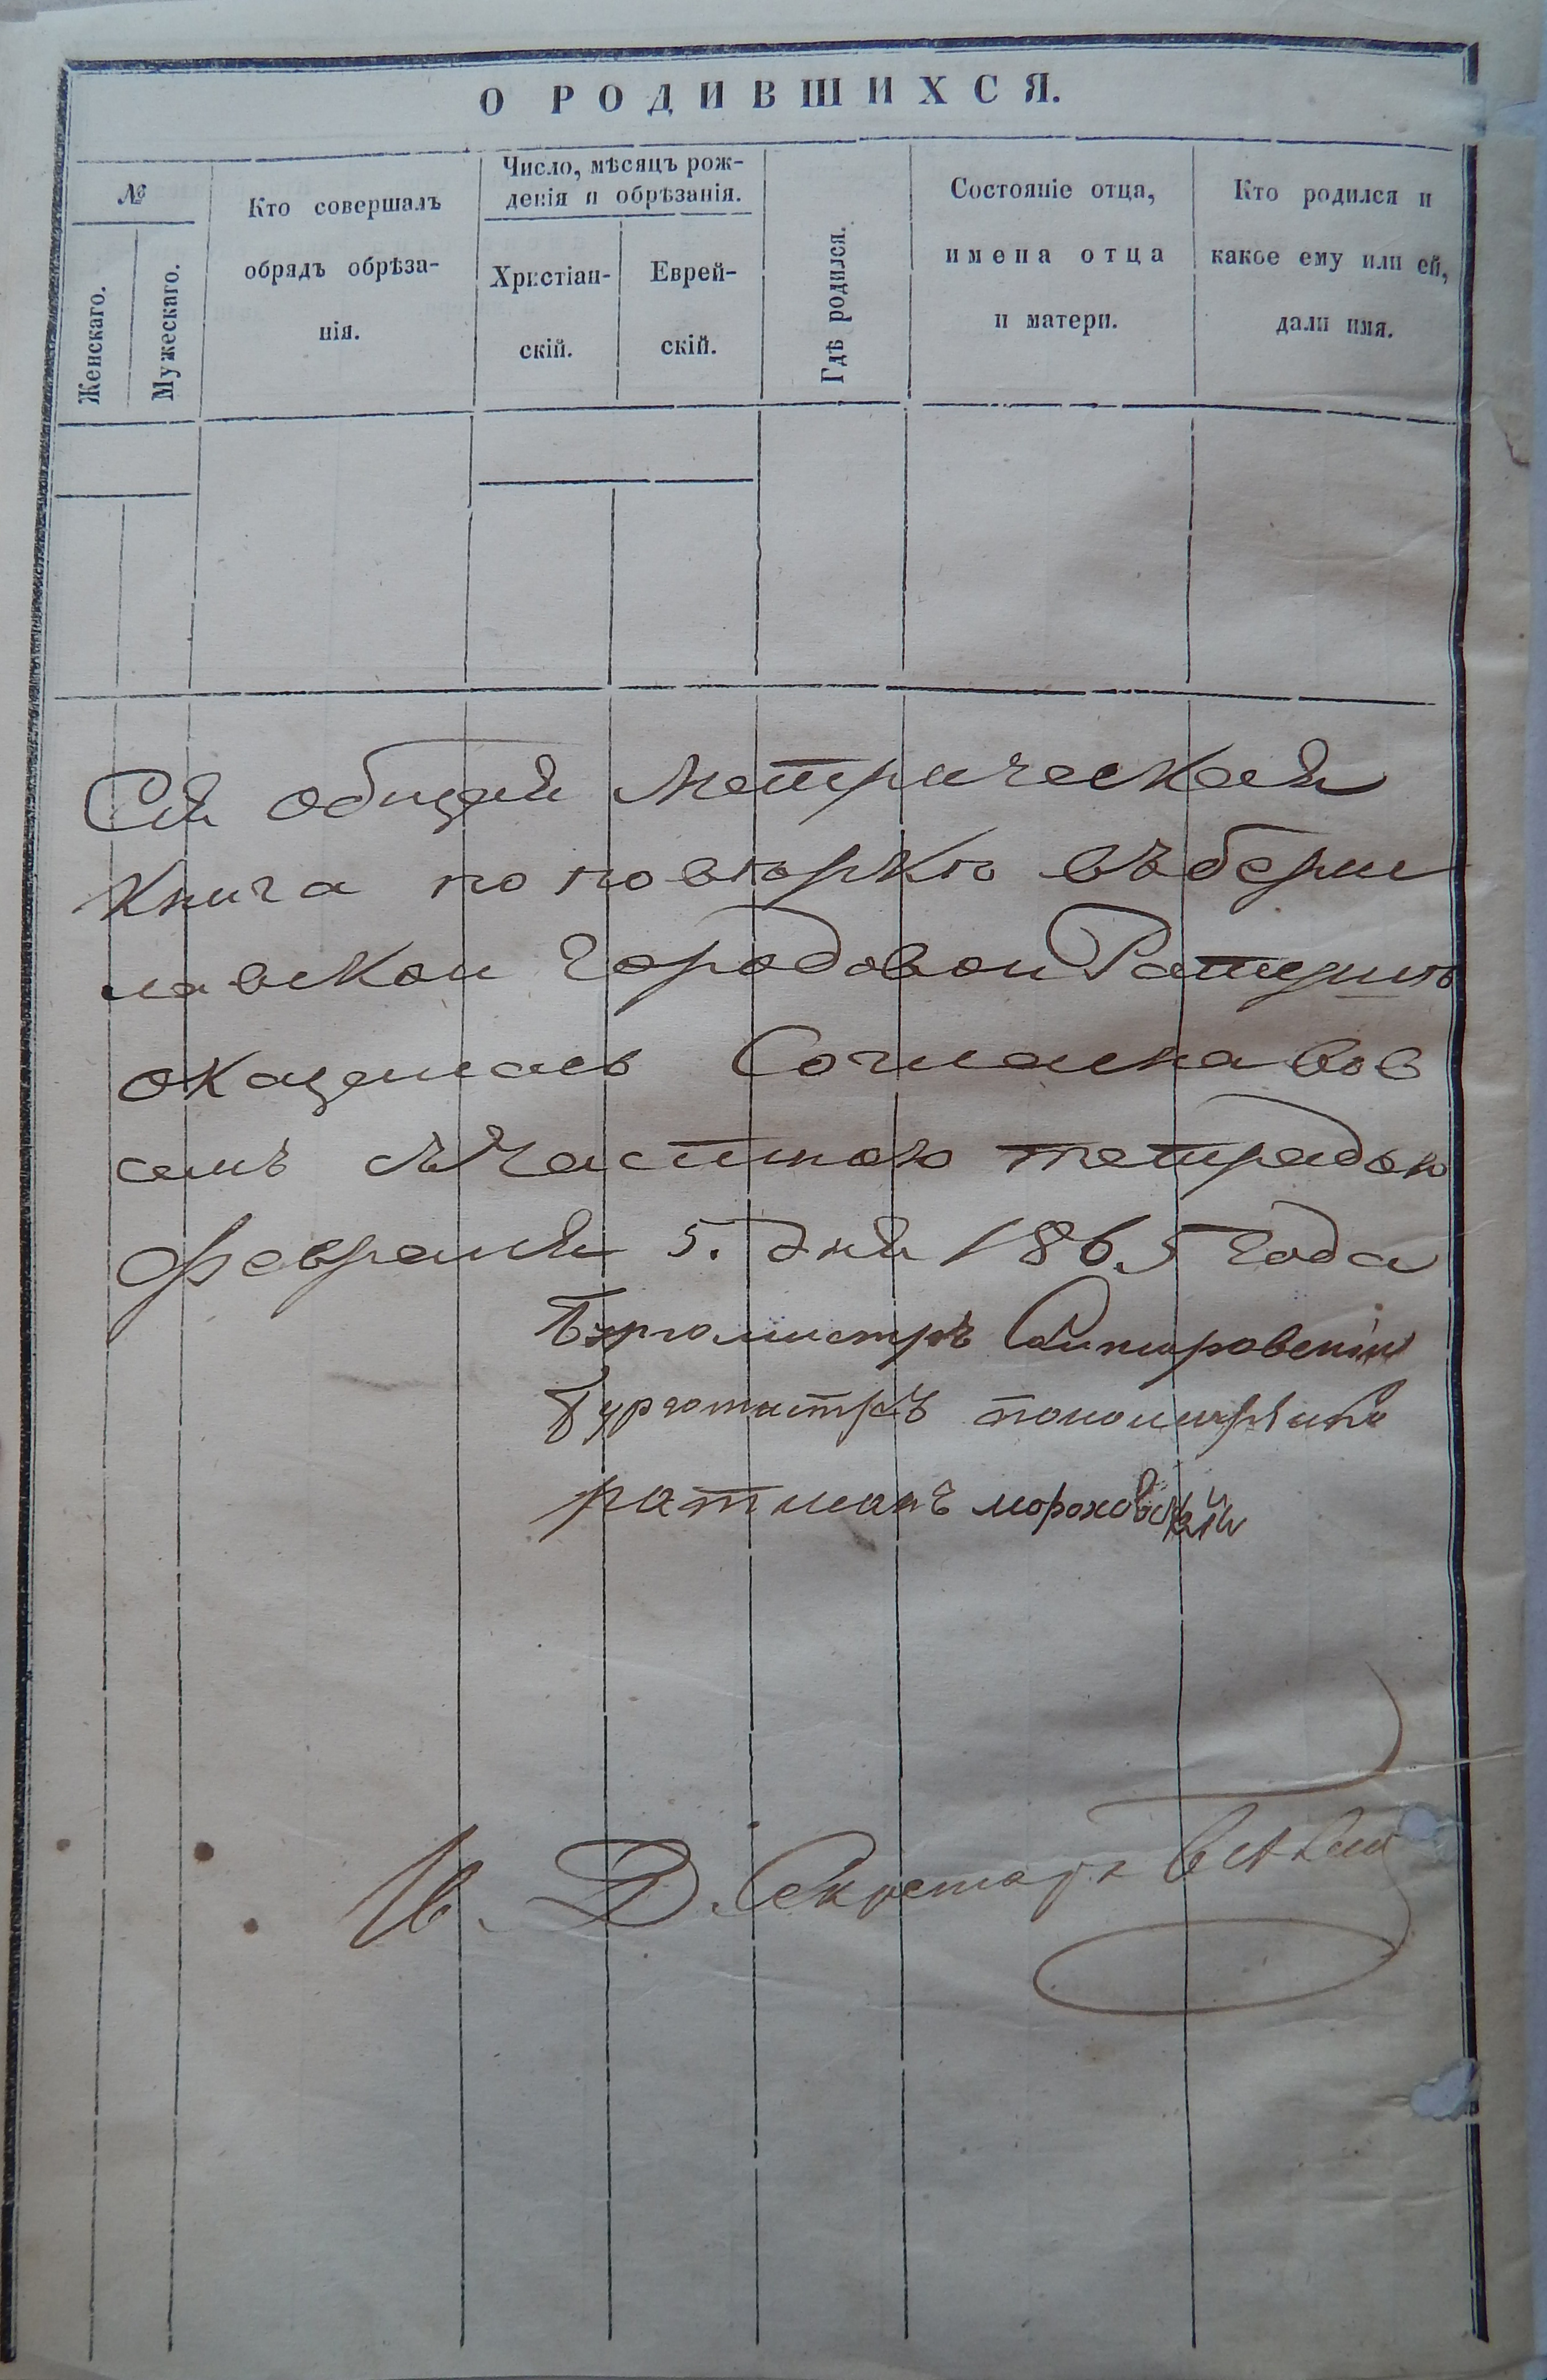 О РОДИВШИХСЯ.
№
Женскаго.
Мужескаго.
Кто совершалъ
обрядъ обрѣза-
нія.
Число, мѣсяцъ рож-
денія и обрѣзанія.
Христіан-
скій.
Еврей-
скій.
Гдѣ родился.
Состояніе отца,
имена отца
и матери.
Кто родился и
какое ему или ей,
дали имя.
Сія общая Метрическая
книга по повѣркѣ въ бери
лавской Городовой Ратушѣ
оказалась Согласна вов
семъ съ Частною тетрадью
февраля 5. дня 1865 года
Бургомистръ
Бургомистръ
ратманъ мороховскій
И. Д. Секретаря